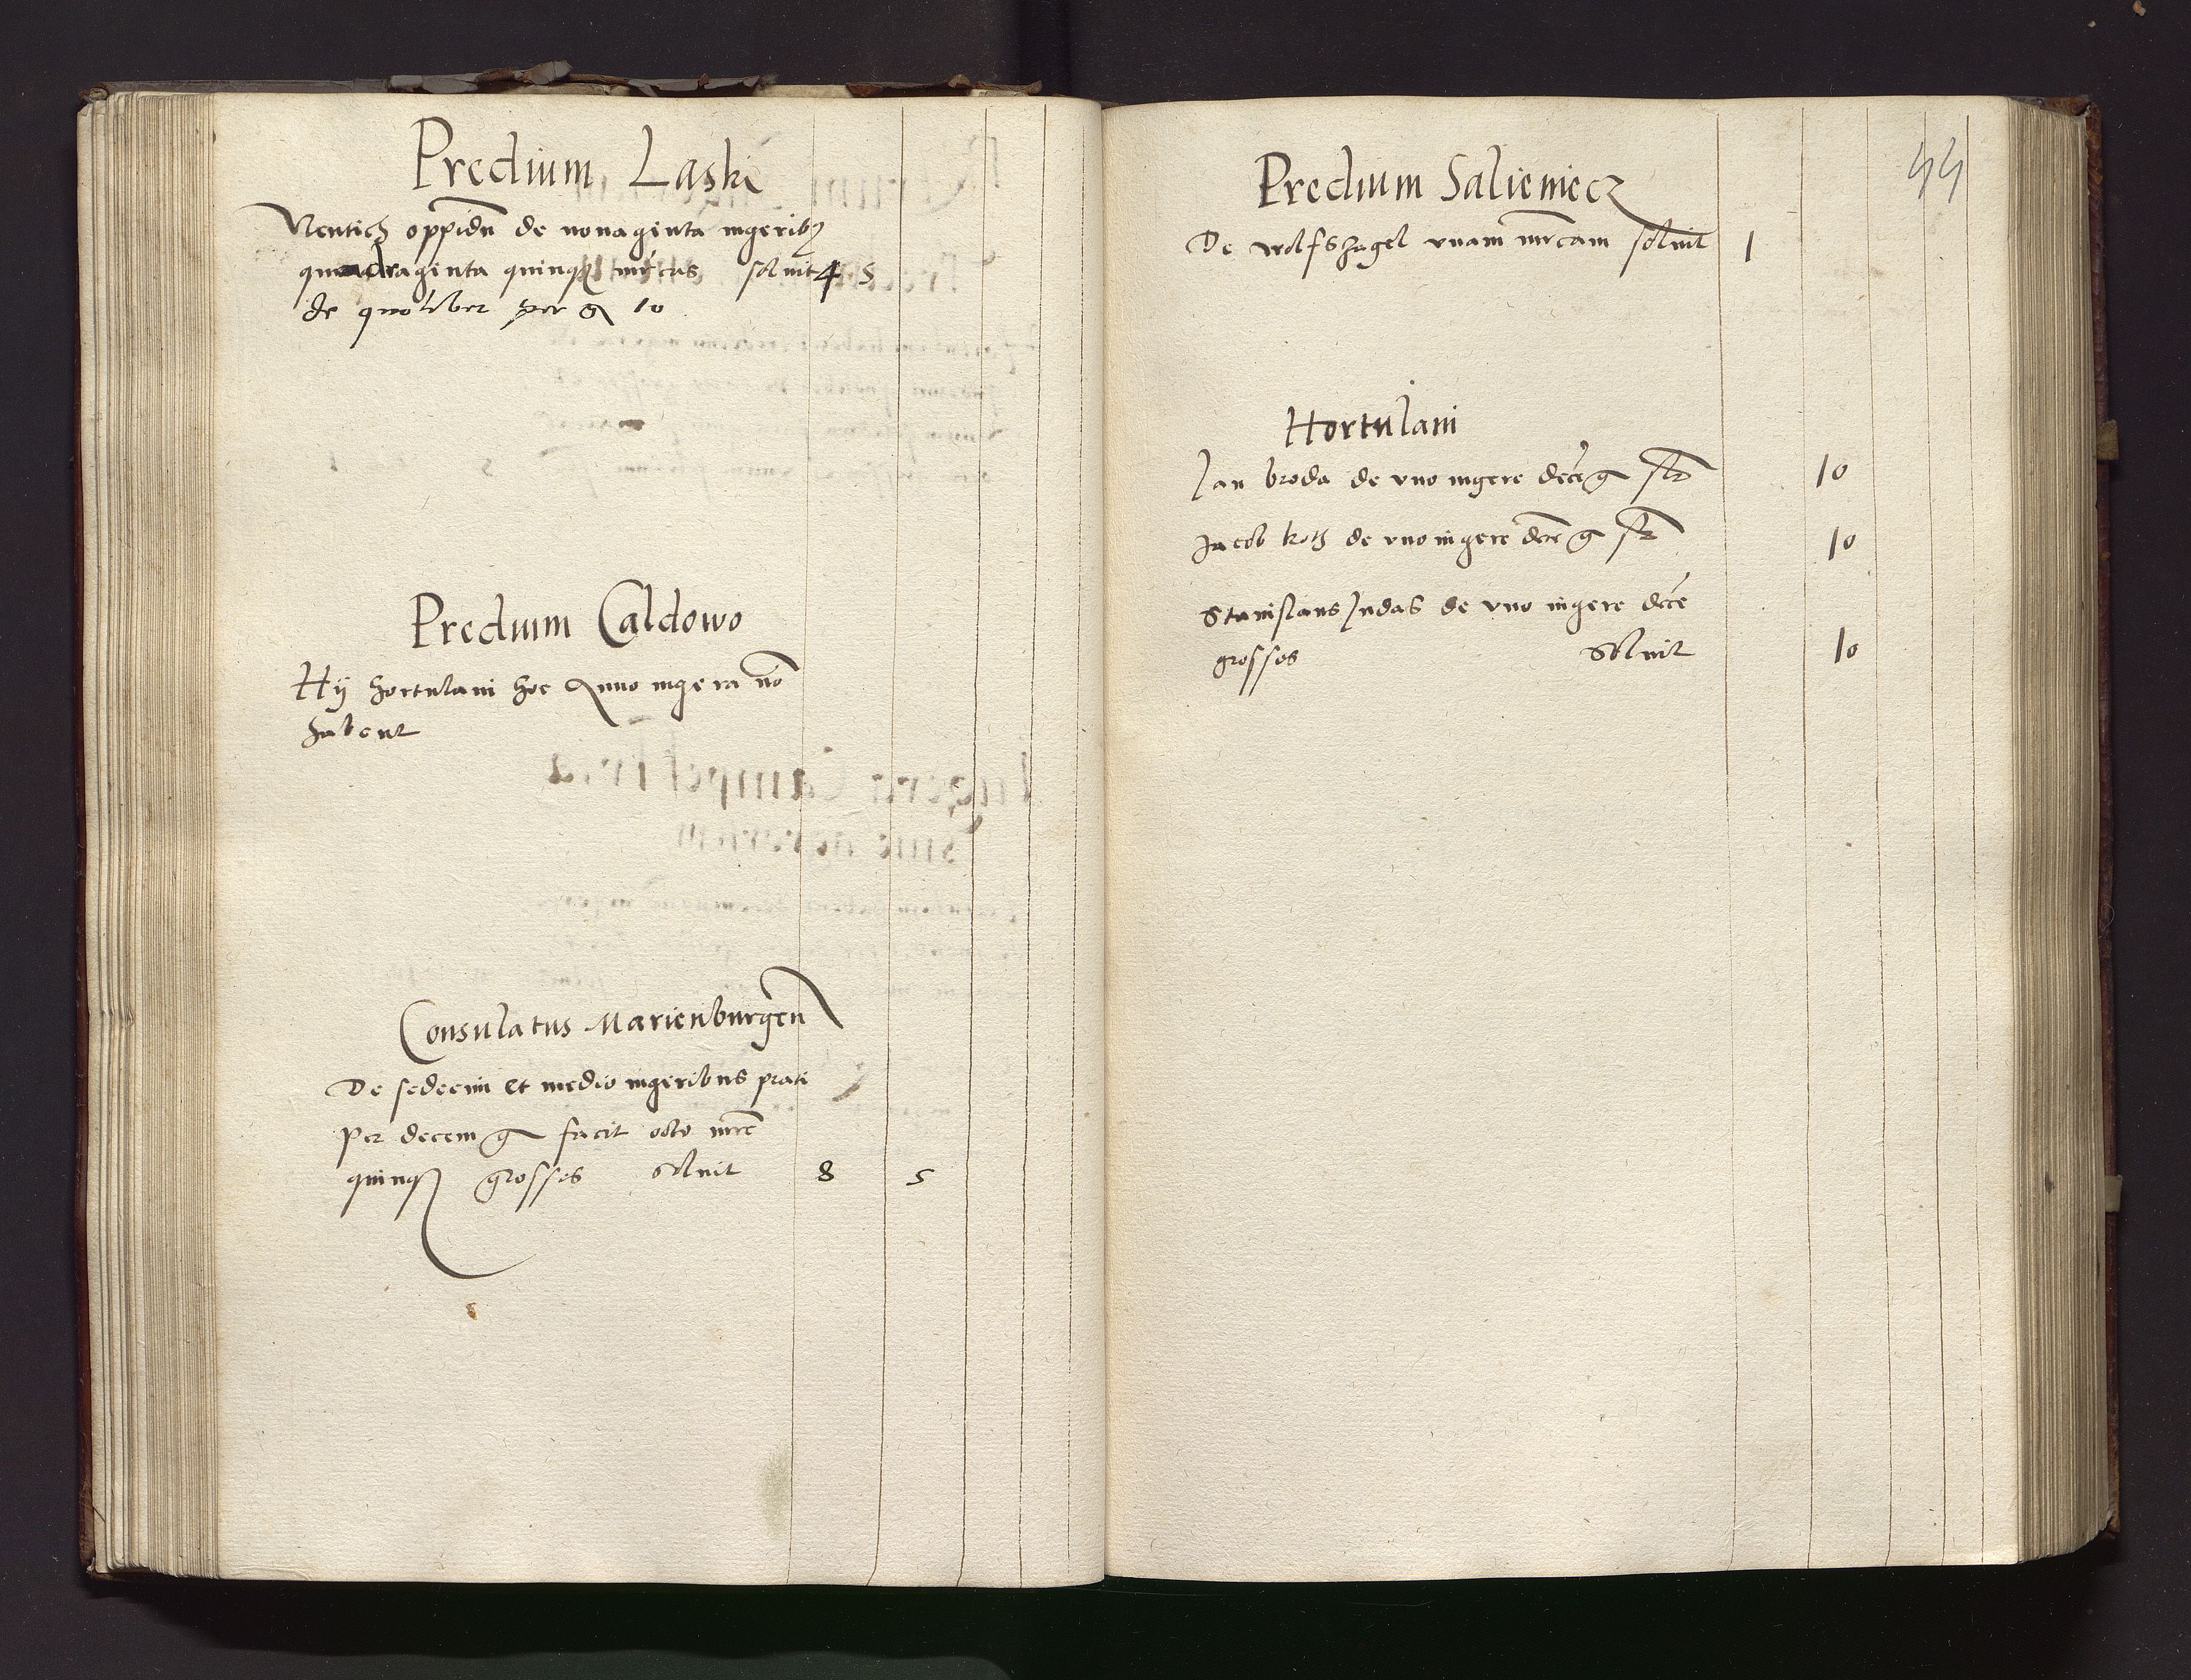 Predium Laski
Nentich oppidū de nonaginta iugeribꝫ
quadraginta quinqꝫ mrcas soluit 4 5
de quolibet per gͬ 10
Predium Caldowo
Hÿ hortulani hoc Anno iugera nō
habent
Consulatus Marienburgeñ
De sedecim et medio iugeribus prati
per decem gͬ facit octo mrc̄
quinqꝫ grosses soluit 8 5
44
Predium Salieniecz
De wolfszagel vnam mrcam soluit 1
Hortulani
Jan broda de vno iugere dece gͬ slt 10
Jacob kotz de vno iugere dece gͬ slt 10
Stanislaus Judas de vno iugere dece
grosses Soluit 10